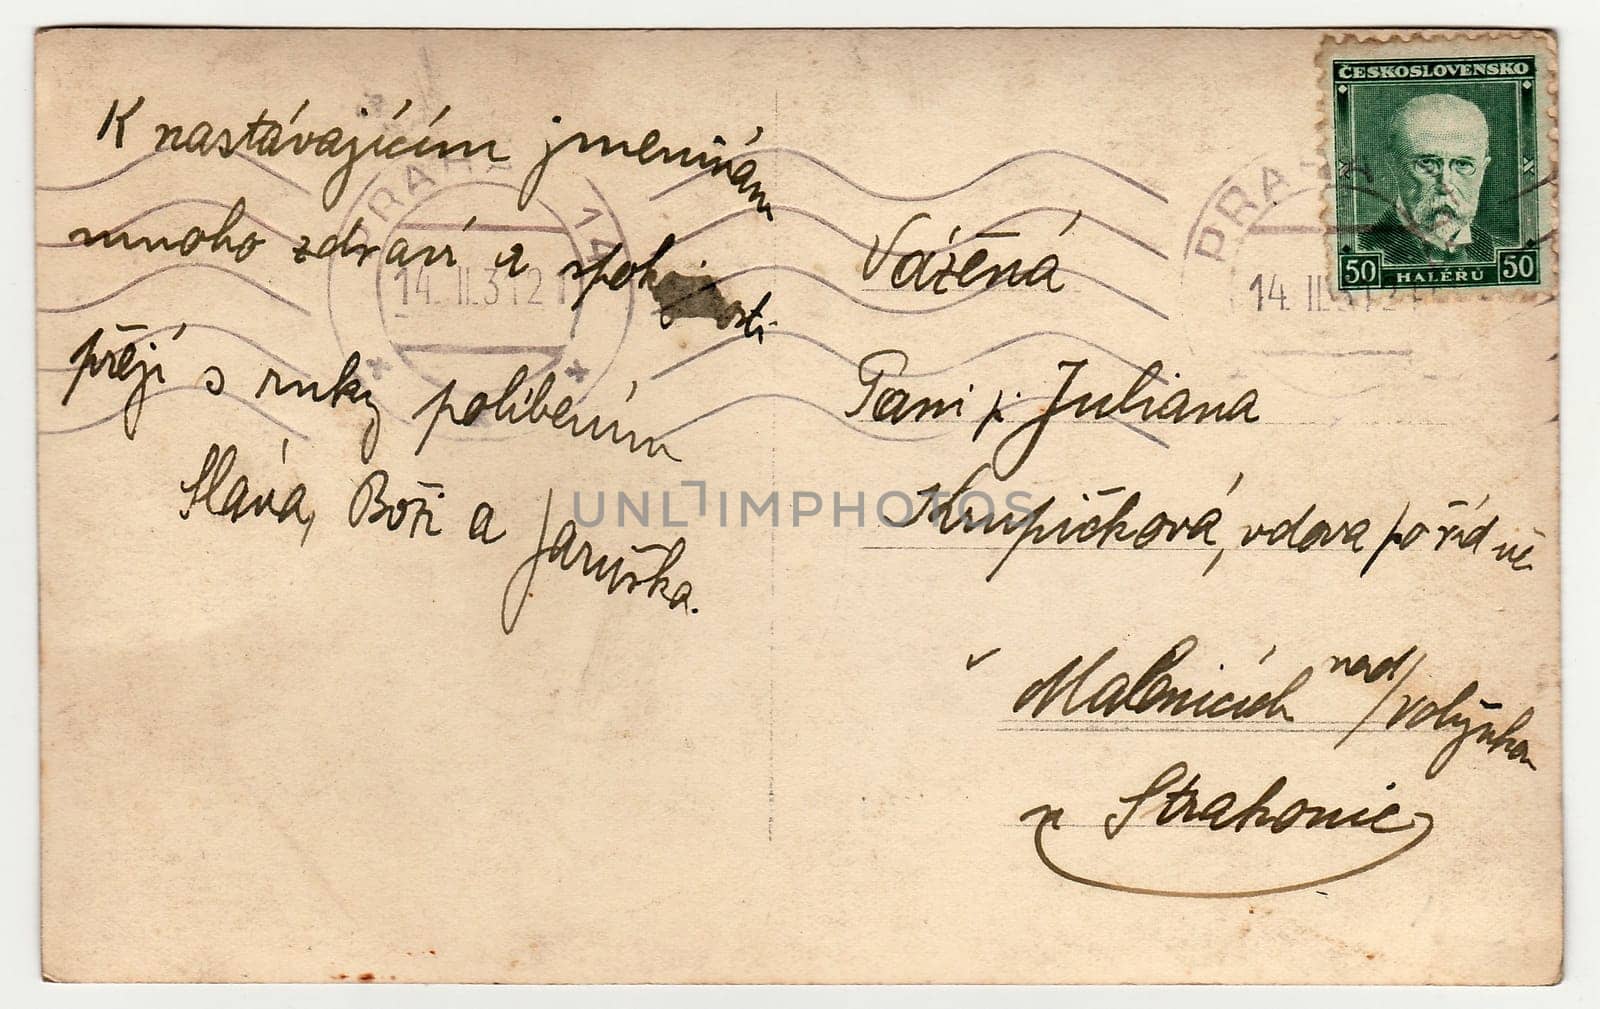 K nastávajícím jmeninám
mnoho zdraví a spokojnosti
přejí s ruky políbením
Sláva, Boži a Jaruška.
ČESKOSLOVENSKO
50 HALÉŘŮ 50
PRAHA 14
14. II. 31 21
PRAHA
14 II. 31 21
Vážená
Paní pí Juliana
Krupičková, vdova po říd uč
v Malenicích nad/Volyňkou
u Strakonic
UNLIMPHOTOS